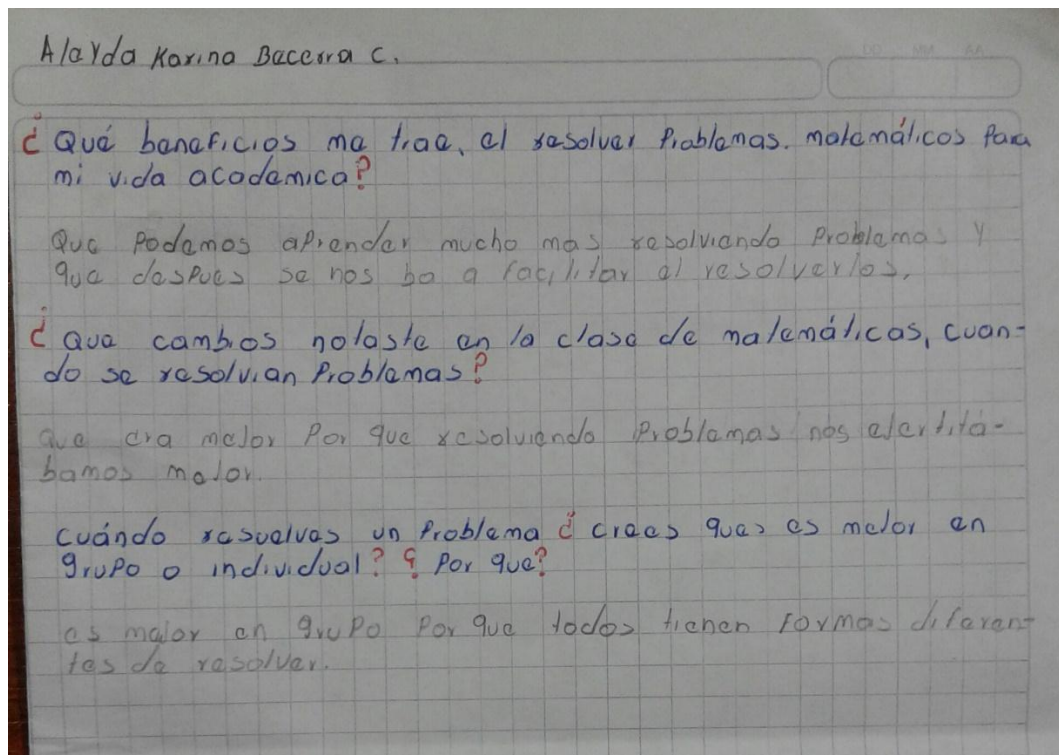 Alayda Karina Becerra C.
DD MM AA
¿Qué beneficios me trae, el resolver Problemas. matemáticos Para
mi vida academica?
Que Podemos aprender mucho mas resolviendo Problemas y
que despues se nos ba a facilitar al resolverlos.
¿Que cambios notaste en la clase de matemáticas, cuan-
do se resolvian Problemas?
Que era mejor Por que resolviendo Problemas nos ejercitá-
bamos mejor.
Cuándo resuelves un Problema ¿ crees que, es mejor en
grupo o individual? ¿ Por que?
es mejor en grupo Por que todos tienen formas diferen-
tes de resolver.